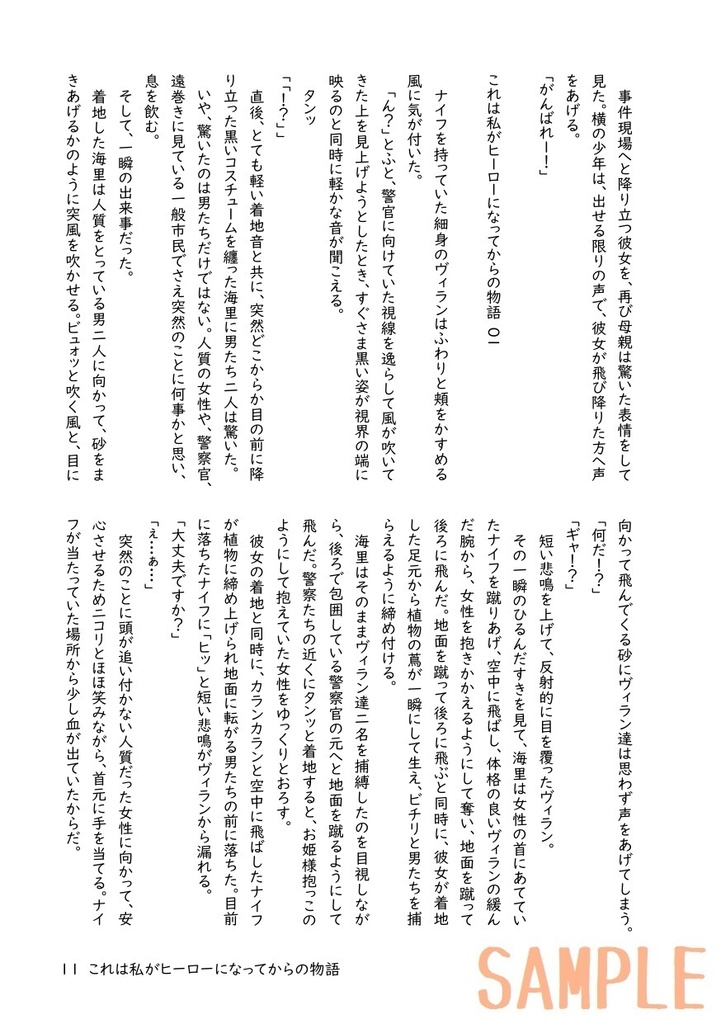 事件現場へと降り立つ彼女を、再び母親は驚いた表情をして
見た。横の少年は、出せる限りの声で、彼女が飛び降りた方へ声
をあげる。
「がんばれー！」
これは私がヒーローになってからの物語 01
ナイフを持っていた細身のヴィランはふわりと頬をかすめる
風に気が付いた。
「ん？」とふと、警官に向けていた視線を逸らして風が吹いて
きた上を見上げようとしたとき、すぐさま黒い姿が視界の端に
映るのと同時に軽かな音が聞こえる。
タンッ
「「！？」」
直後、とても軽い着地音と共に、突然どこからか目の前に降
り立った黒いコスチュームを纏った海里に男たち二人は驚いた。
いや、驚いたのは男たちだけではない。人質の女性や、警察官、
遠巻きに見ている一般市民でさえ突然のことに何事かと思い、
息を飲む。
そして、一瞬の出来事だった。
着地した海里は人質をとっている男二人に向かって、砂をま
きあげるかのように突風を吹かせる。ビュォッと吹く風と、目に
向かって飛んでくる砂にヴィラン達は思わず声をあげてしまう。
「何だ！？」
「ギャ！？」
短い悲鳴を上げて、反射的に目を覆ったヴィラン。
その一瞬のひるんだすきを見て、海里は女性の首にあててい
たナイフを蹴りあげ、空中に飛ばし、体格の良いヴィランの緩ん
だ腕から、女性を抱きかかえるようにして奪い、地面を蹴って
後ろに飛んだ。地面を蹴って後ろに飛ぶと同時に、彼女が着地
した足元から植物の蔦が一瞬にして生え、ビチリと男たちを捕
らえるように締め付ける。
海里はそのままヴィラン達二名を捕縛したのを目視しなが
ら、後ろで包囲している警察官の元へと地面を蹴るようにして
飛んだ。警察たちの近くにタンッと着地すると、お姫様抱っこの
ようにして抱えていた女性をゆっくりとおろす。
彼女の着地と同時に、カランカランと空中に飛ばしたナイフ
が植物に締め上げられ地面に転がる男たちの前に落ちた。目前
に落ちたナイフに「ヒッ」と短い悲鳴がヴィランから漏れる。
「大丈夫ですか？」
「ぇ…ぁ…」
突然のことに頭が追い付かない人質だった女性に向かって、安
心させるためニコリとほほ笑みながら、首元に手を当てる。ナイ
フが当たっていた場所から少し血が出ていたからだ。
11 これは私がヒーローになってからの物語
SAMPLE